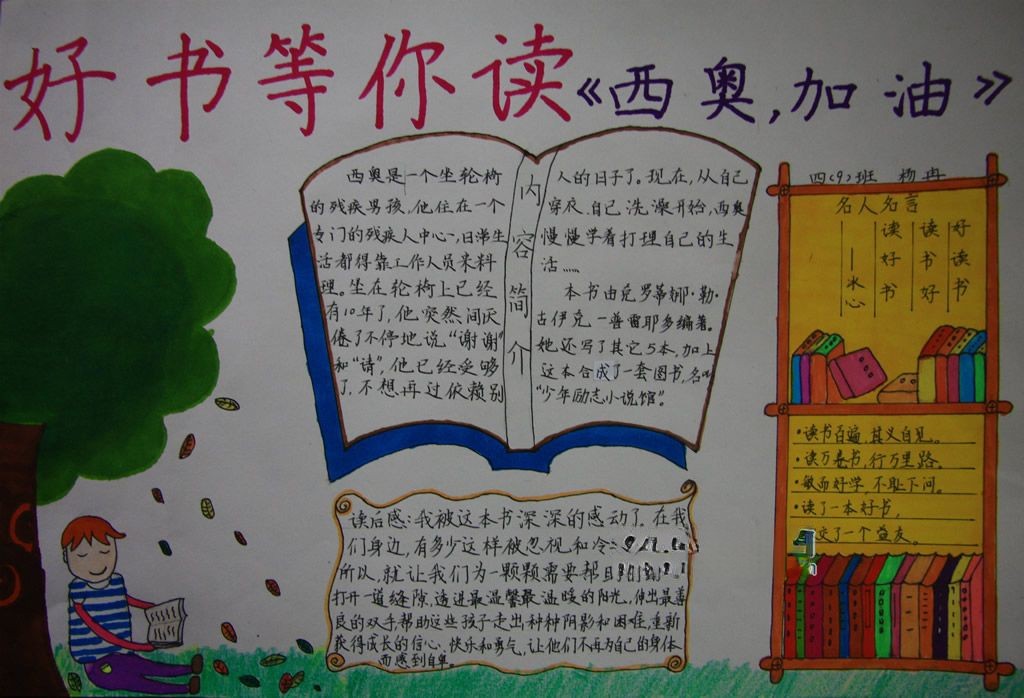 好书等你读《西奥,加油》
西奥是一个坐轮椅
的残疾男孩,他住在一个
专门的残疾人中心,日常生
活都得靠工作人员来料
理。坐在轮椅上已经
有10年了,他突然间厌
倦了不停地说“谢谢”
和“请”,他已经受够
了,不想再过依赖别
内容简介
人的日子了。现在,从自己
穿衣、自己洗澡开始,西奥
慢慢学着打理自己的生
活……
本书由克罗蒂娜·勒·
古伊克-普雷耶多编著。
她还写了其它5本,加上
这本合成了一套图书,名叫
“少年励志小说馆”。
读后感:我被这本书深深的感动了。在我
们身边,有多少这样被忽视和冷
所以,就让我们为一颗颗需要帮
打开一道缝隙,透进最温馨最温暖的阳光。伸出最善
良的双手帮助这些孩子走出种种阴影和困难,重新
获得成长的信心、快乐和勇气,让他们不再为自己的身体
而感到自卑。
四(9)班 杨冉
名人名言
好读书
读书好
读好书
——冰心
·读书百遍,其义自见。
·读万卷书,行万里路。
·敏而好学,不耻下问。
·读了一本好书,
交了一个益友。